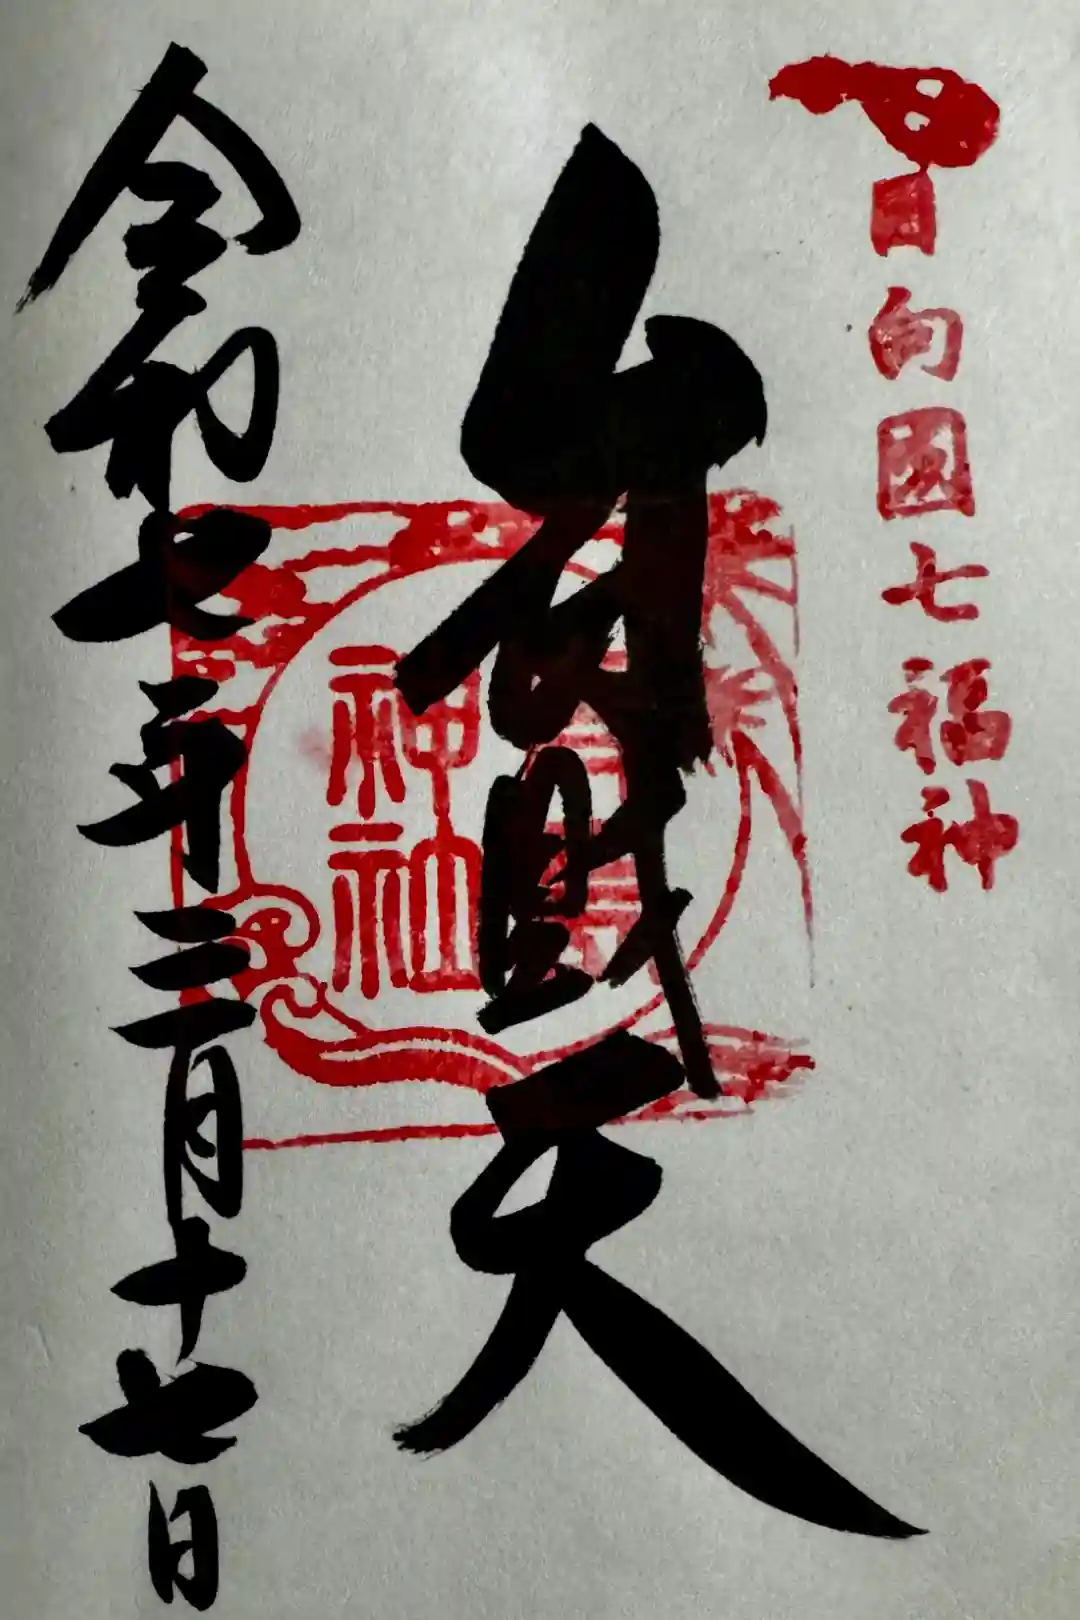 日向國七福神
弁財天
神社
令和七年三月十七日